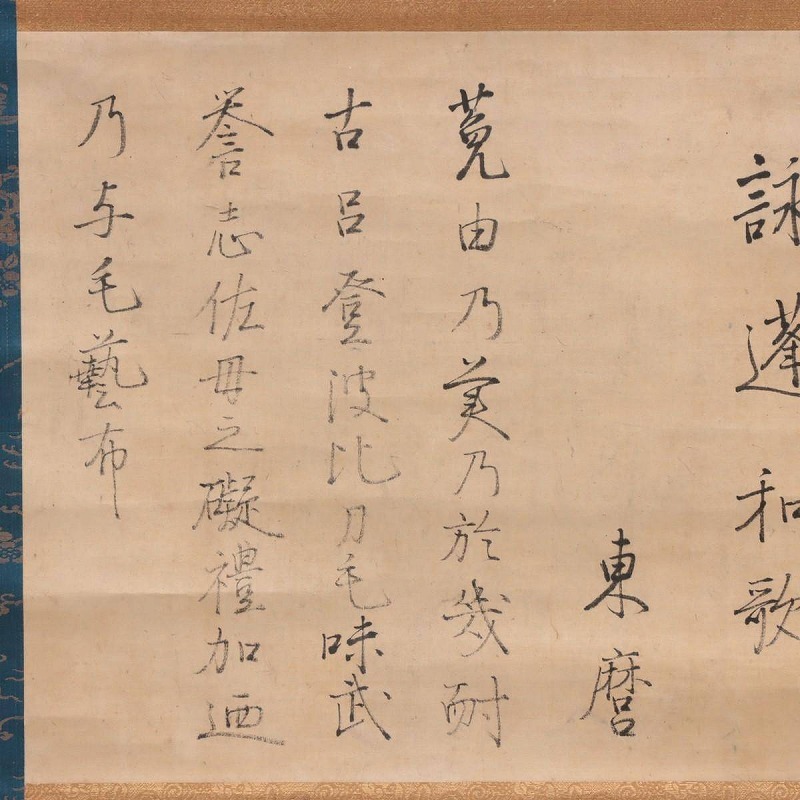 詠蓬和歌
東麿
菟由乃美乃於幾耐
古呂登波比刀毛味武
誉志佐毋之礙禮加迺
乃与毛藝布